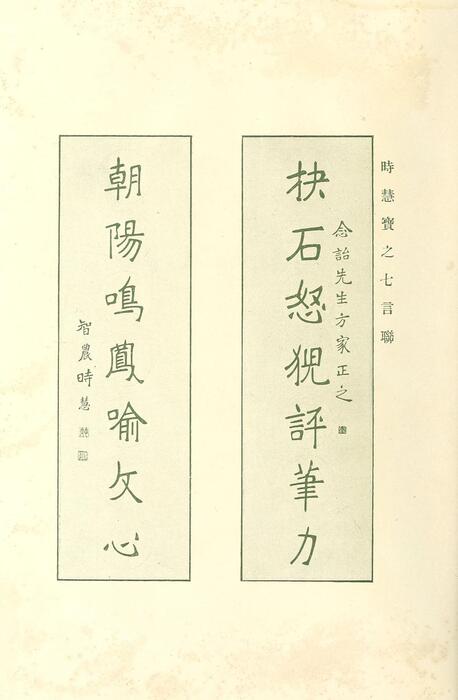 時慧寶之七言聯
抉石怒猊評筆力
念詒先生方家正之
朝陽鳴鳳喻文心
智農時慧